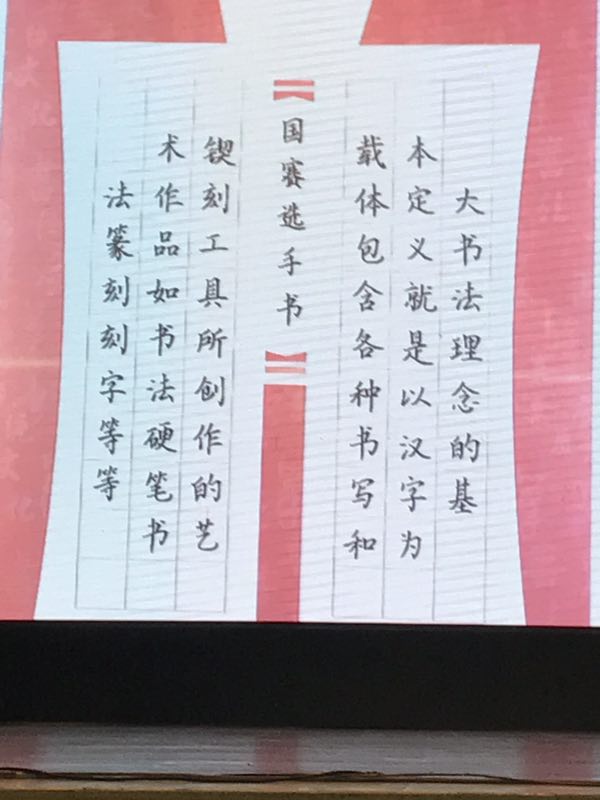 大书法理念的基
本定义就是以汉字为
载体包含各种书写和
国赛选手书
锲刻工具所创作的艺
术作品如书法硬笔书
法篆刻刻字等等